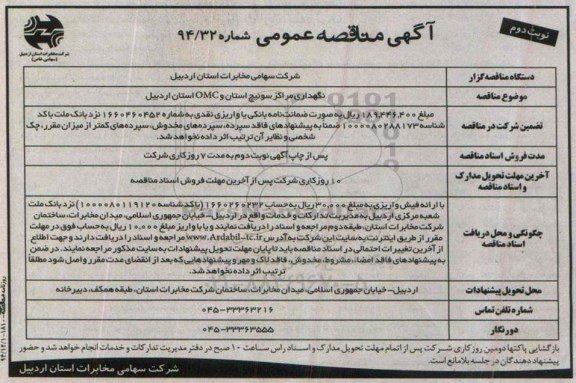 نوبت دوم
آگهی مناقصه عمومی شماره ۹۴/۳۲
شرکت مخابرات استان اردبیل
(سهامی خاص)
دستگاه مناقصه گزار
شرکت سهامی مخابرات استان اردبیل
موضوع مناقصه
نگهداری مراکز سوئیچ استان و OMC استان اردبیل
تضمین شرکت در مناقصه
مبلغ ۱۸۹,۴۴۶,۴۰۰ ریال به صورت ضمانت نامه بانکی یا واریز نقدی به شماره ۱۶۶۰۴۶۰۴۵۲ نزد بانک ملت با کد
شناسه ۱۰۰۰۰۸۰۲۸۸۱۷۳ ضمنا به پیشنهادهای فاقد سپرده، سپرده‌های مخدوش، سپرده‌های کمتر از میزان مقرر، چک
شخصی و نظایر آن ترتیب اثر داده نخواهد شد.
مدت فروش اسناد مناقصه
پس از چاپ آگهی نوبت دوم به مدت ۷ روز کاری شرکت
آخرین مهلت تحویل مدارک
و اسناد مناقصه
۱۰ روز کاری شرکت پس از آخرین مهلت فروش اسناد مناقصه
چگونگی و محل دریافت
اسناد مناقصه
با ارائه فیش واریزی به مبلغ ۳۰,۰۰۰ ریال به حساب ۱۶۶۰۲۶۰۲۳۲ (با کد شناسه ۱۰۰۰۰۸۰۱۱۹۱۲۰) نزد بانک ملت
شعبه مرکزی اردبیل به مدیریت تدارکات و خدمات واقع در اردبیل- خیابان جمهوری اسلامی، میدان مخابرات، ساختمان
شرکت مخابرات استان، طبقه دوم مراجعه و اسناد را دریافت نمایند و یا با واریز مبلغ ۱۰,۰۰۰ ریال به حساب فوق در مهلت
مقرر از طریق اینترنت به سایت این شرکت به آدرس www.Ardabil-tc.ir مراجعه و اسناد را دریافت دارند و جهت اطلاع
از آخرین تغییرات احتمالی در اسناد مناقصه باید تا پایان مهلت تحویل پیشنهادات به سایت مذکور مراجعه نمایند. در ضمن
به پیشنهادهای فاقد امضاء، مشروط، مخدوش، فاقد لاک و مهر و پیشنهادهایی که بعد از انقضای مدت مقرر واصل شود مطلقاً
ترتیب اثر داده نخواهد شد.
محل تحویل پیشنهادات
اردبیل- خیابان جمهوری اسلامی، میدان مخابرات، ساختمان شرکت مخابرات استان، طبقه همکف، دبیرخانه
شماره تلفن تماس
۰۴۵-۳۳۳۶۳۲۱۶
دورنگار
۰۴۵-۳۳۳۶۳۵۵۵
بازگشایی پاکتها دومین روز کاری شرکت پس از اتمام مهلت تحویل مدارک و اسناد راس ساعت ۱۰ صبح در دفتر مدیریت تدارکات و خدمات انجام خواهد شد و حضور
پیشنهاد دهندگان در جلسه بلامانع است.
شرکت سهامی مخابرات استان اردبیل